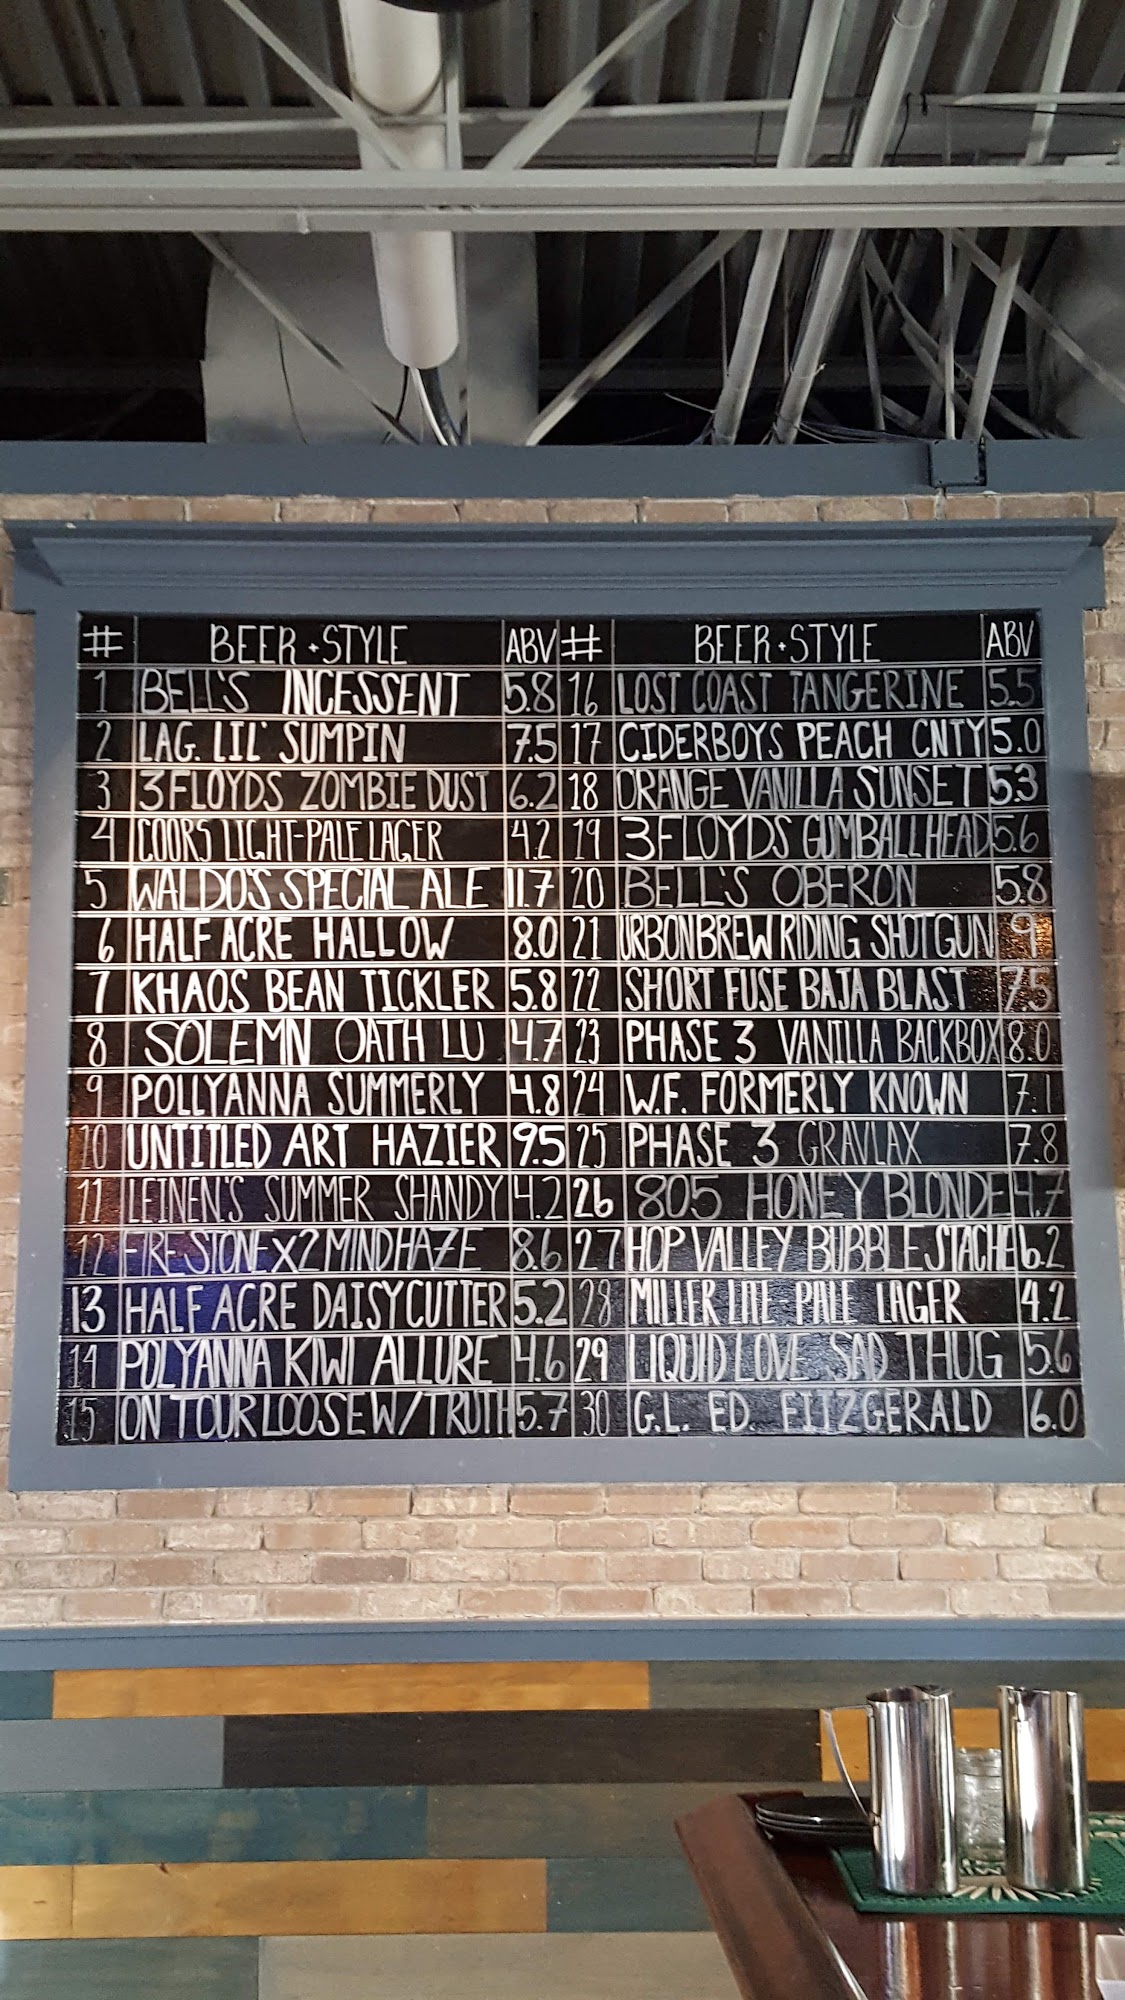 # BEER • STYLE ABV # BEER • STYLE ABV
1 BELL'S INCESSENT 5.8 16 LOST COAST TANGERINE 5.5
2 LAG. LIL' SUMPIN 7.5 17 CIDERBOYS PEACH CNTY 5.0
3 3 FLOYDS ZOMBIE DUST 6.2 18 ORANGE VANILLA SUNSET 5.3
4 COORS LIGHT-PALE LAGER 4.2 19 3 FLOYDS GUMBALLHEAD 5.6
5 WALDO'S SPECIAL ALE 11.7 20 BELL'S OBERON 5.8
6 HALF ACRE HALLOW 8.0 21 URBONBREW RIDING SHOTGUN 9
7 KHAOS BEAN TICKLER 5.8 22 SHORT FUSE BAJA BLAST 7.5
8 SOLEMN OATH LU 4.7 23 PHASE 3 VANILLA BACKBOX 8.0
9 POLLYANNA SUMMERLY 4.8 24 W.F. FORMERLY KNOWN 7.1
10 UNTITLED ART HAZIER 9.5 25 PHASE 3 GRAVLAX 7.8
11 LEINEN'S SUMMER SHANDY 4.2 26 805 HONEY BLONDE 4.7
12 FIRESTONE X2 MINDHAZE 8.6 27 HOP VALLEY BUBBLE STACHE 6.2
13 HALF ACRE DAISYCUTTER 5.2 28 MILLER LITE-PALE LAGER 4.2
14 POLYANNA KIWI ALLURE 4.6 29 LIQUID LOVE SAD THUG 5.6
15 ON TOUR LOOSE W/TRUTH 5.7 30 G.L. ED. FITZGERALD 6.0